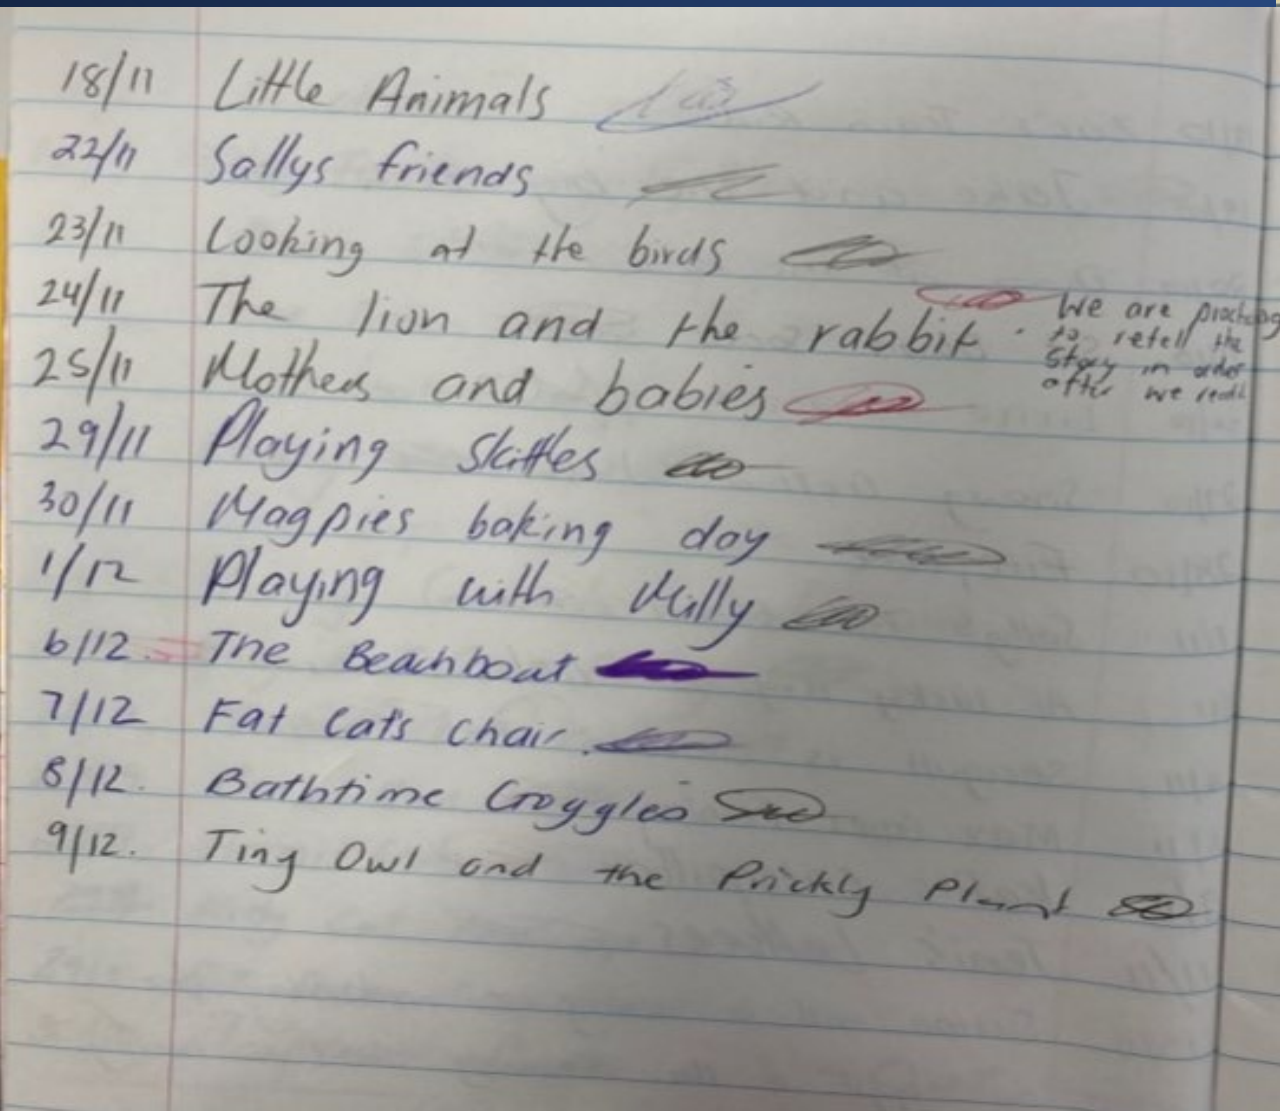 18/11 Little Animals
22/11 Sallys friends
23/11 Looking at the birds
24/11 The lion and the rabbit.
We are practicing
to retell the
Story in order
after we read.
25/11 Mothers and babies
29/11 Playing Skittles
30/11 Magpies baking day
1/12 Playing with Milly
6/12. The Beachboat
7/12 Fat Cats Chair.
8/12. Bathtime Goggles
9/12. Tiny Owl and the Prickly Plant